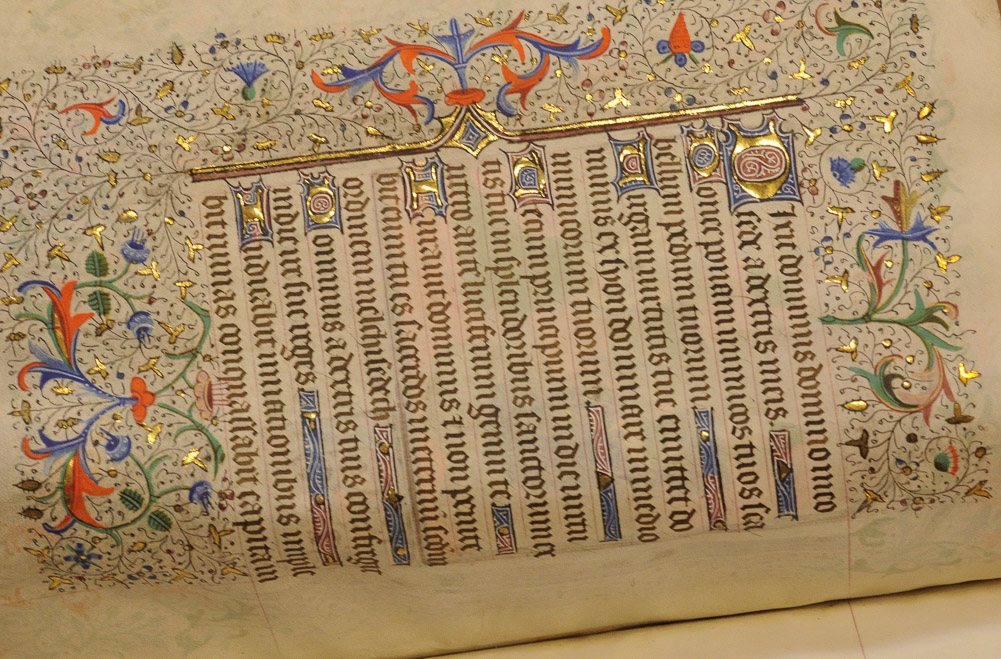 Dixit dominus domino meo
sede a dextris meis
Donec ponam inimicos tuos sca
bellum pedum tuorum
Virgam virtutis tue emittet do
minus ex syon dominare in medio
inimicorum tuorum
Tecum principium in die virtu
tis tue in splendoribus sanctorum ex
utero ante luciferum genui te
Iuravit dominus et non penite
bit eum tu es sacerdos in eternum scdm
ordinem melchisedech
Dominus a dextris tuis confregit
in die ire sue reges
Iudicabit in nationibus imple
bit ruinas conquassabit capita in